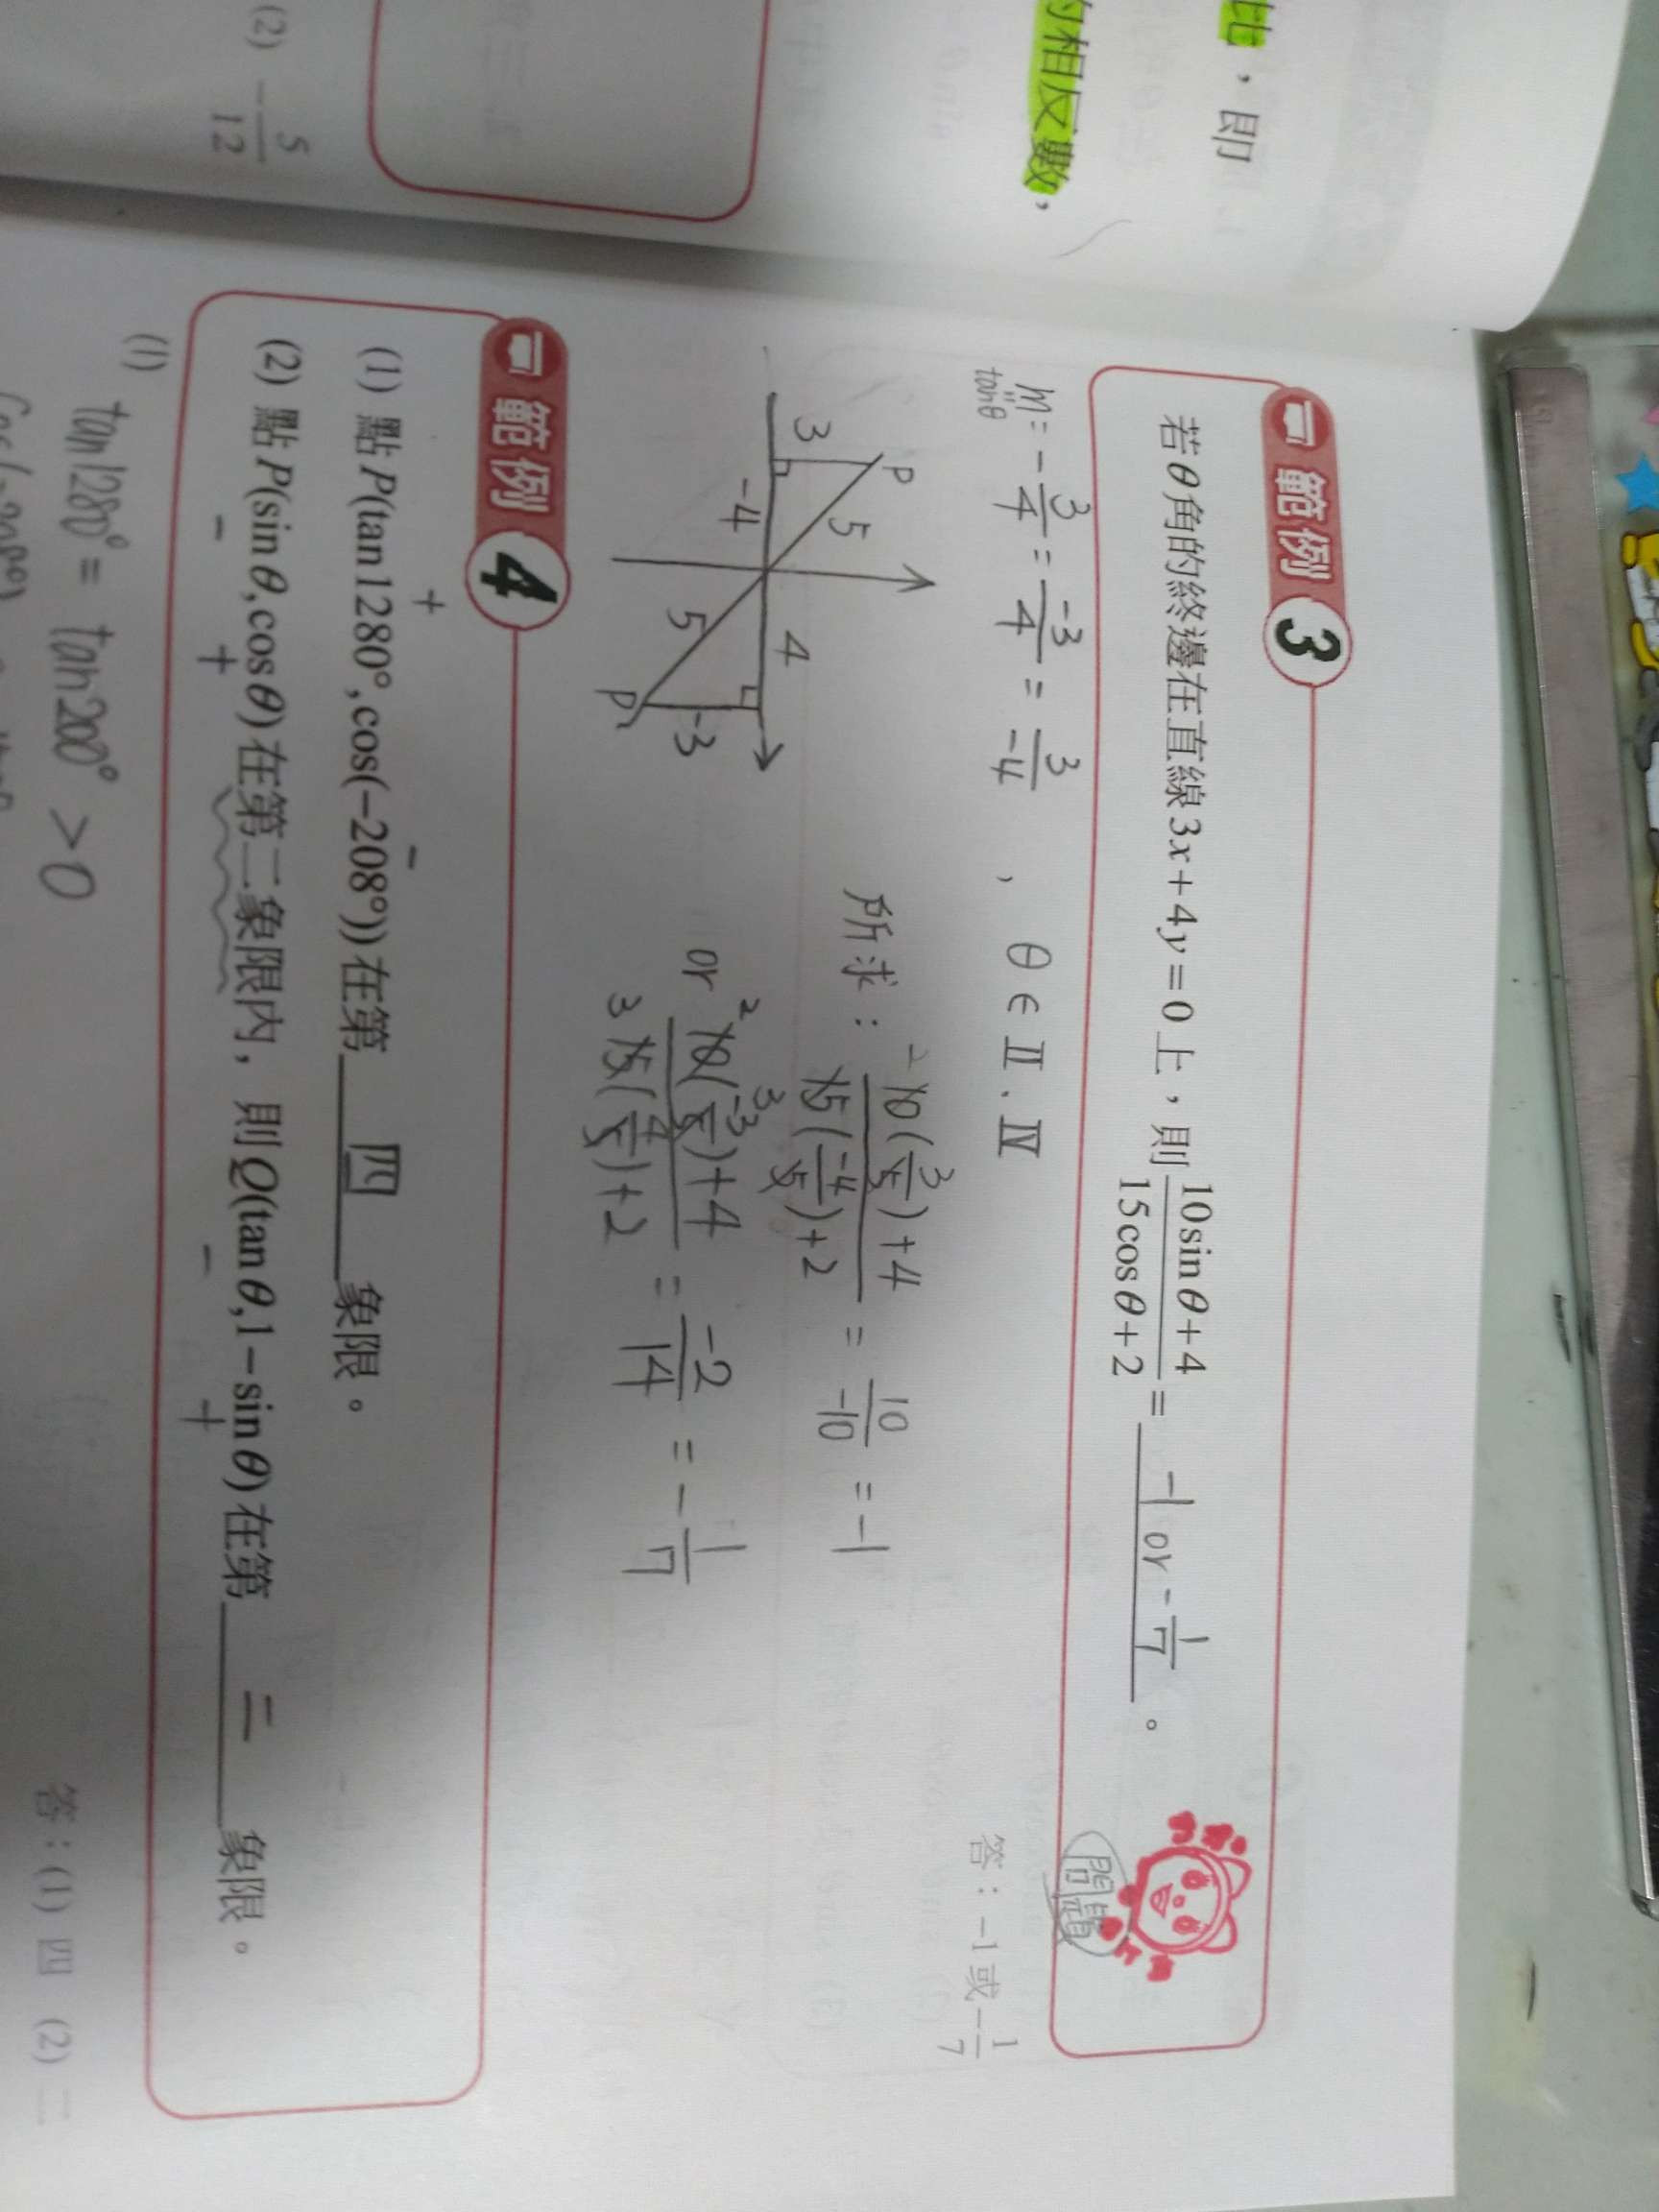 比，即
的相反數，
(2) -5/12
範例 3
若θ角的終邊在直線3x+4y=0上，則 (10sinθ+4)/(15cosθ+2) = -1 or -1/7 。
問題
答：-1或-1/7
m = -3/4 = -3/4 = 3/-4 , θ ∈ Ⅱ. Ⅳ
tanθ
P
5
3
-4
4
5
-3
P
所求：(10(3/5)+4)/(15(-4/5)+2) = 10/-10 = -1
or (10(-3/5)+4)/(15(4/5)+2) = -2/14 = -1/7
範例 4
+ -
(1) 點P(tan1280°,cos(-208°))在第 四 象限。
(2) 點P(sinθ,cosθ)在第二象限內，則Q(tanθ,1-sinθ)在第 二 象限。
- + - +
答：(1) 四 (2) 二
(1)
tan1280° = tan200° > 0